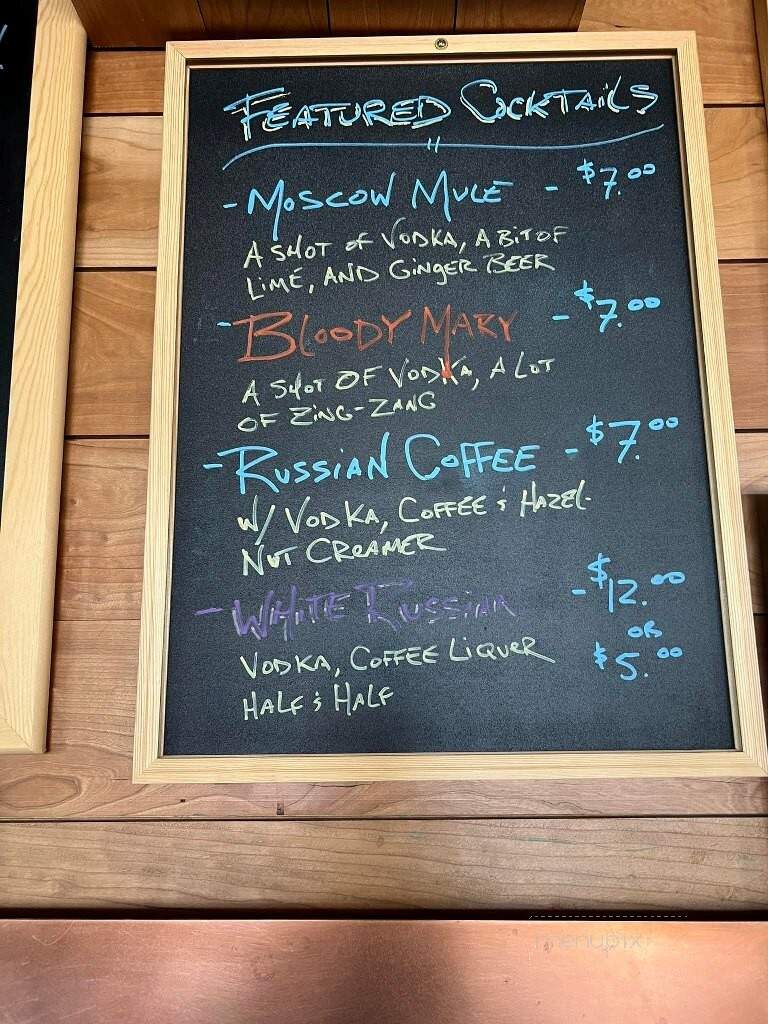 Featured Cocktails
- Moscow Mule - $7.00
A shot of Vodka, a bit of
Lime, and Ginger Beer
- Bloody Mary - $7.00
A shot of Vodka, a lot
of Zing-Zang
- Russian Coffee - $7.00
w/ Vodka, Coffee & Hazel-
nut Creamer
- White Russian - $12.00
or
Vodka, Coffee Liquer $5.00
Half & Half
menupix